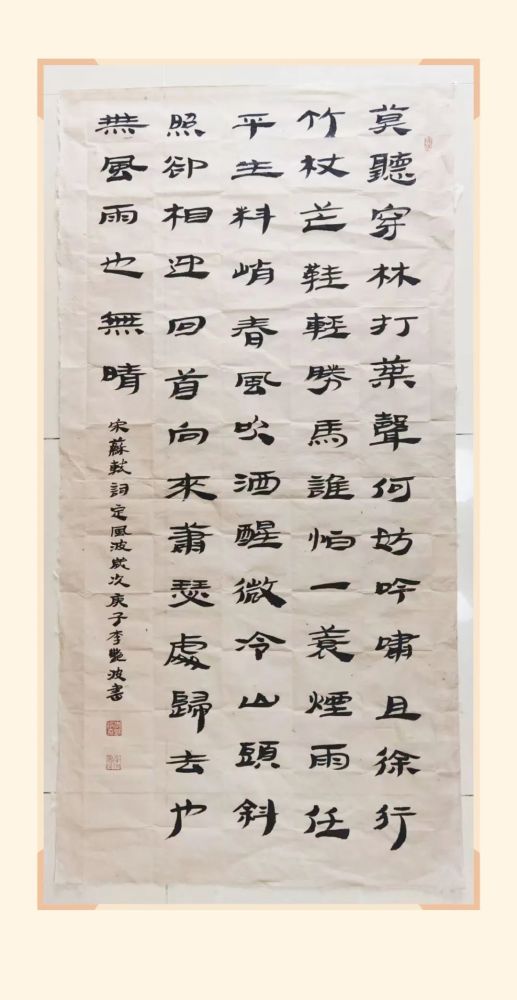 莫聽穿林打葉聲何妨吟嘯且徐行
竹杖芒鞋輕勝馬誰怕一蓑煙雨任
平生料峭春風吹酒醒微冷山頭斜
照卻相迎回首向來蕭瑟處歸去也
無風雨也無晴
宋蘇軾詞定風波歲次庚子李艷波書